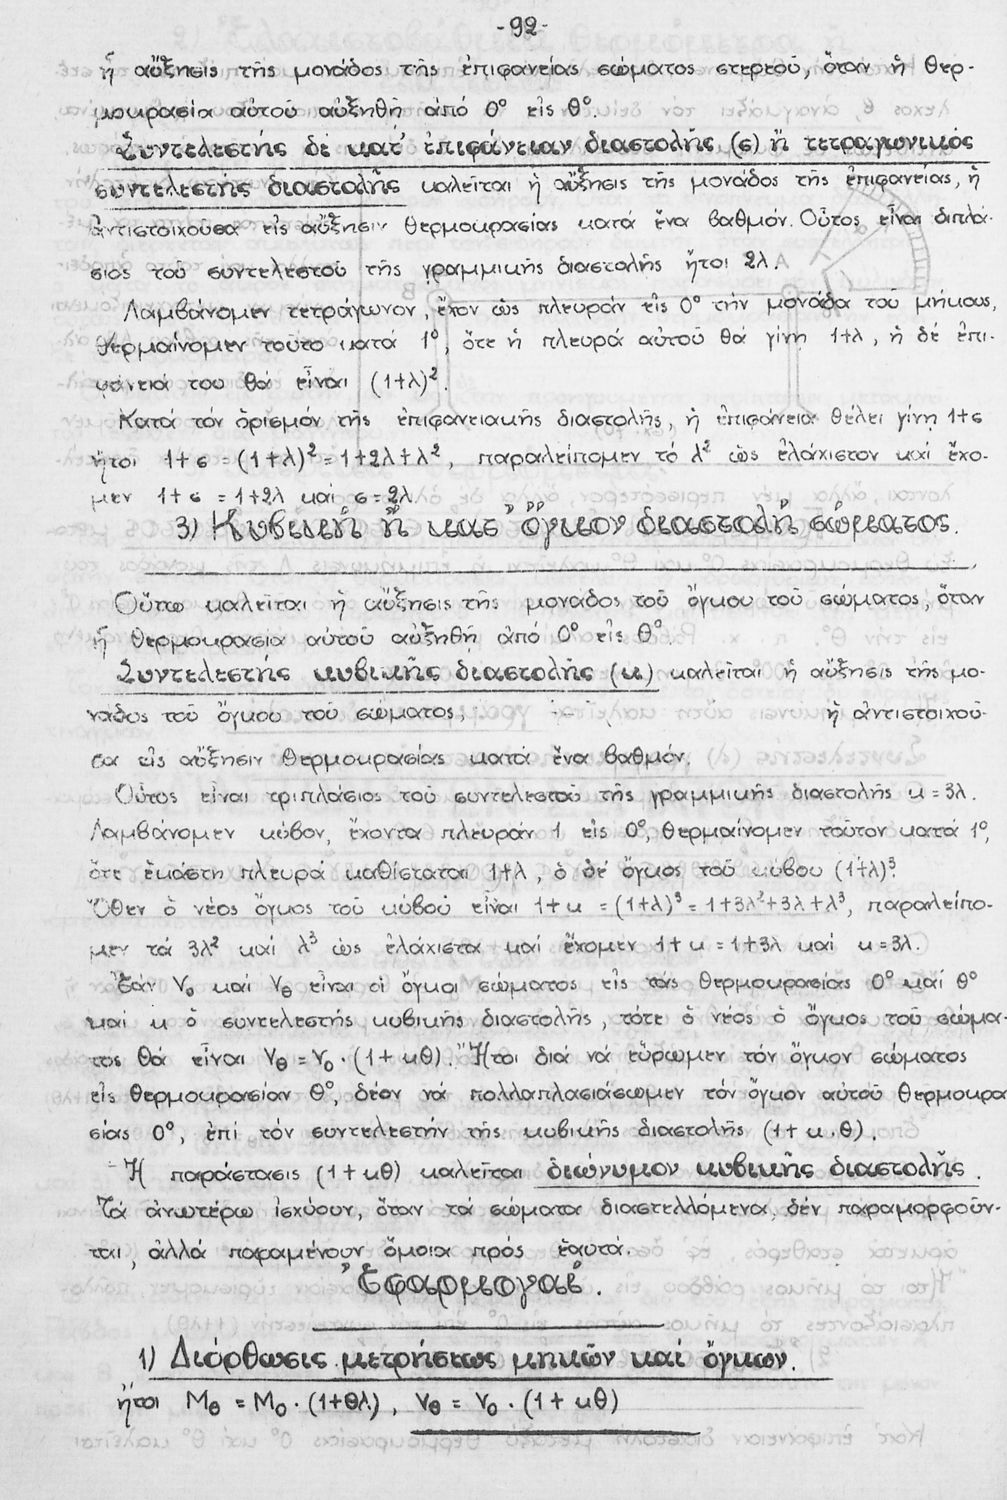 -92-
ἡ αὔξησις τῆς μονάδος τῆς ἐπιφανείας σώματος στερεοῦ, ὅταν ἡ θερ-
μοκρασία αὐτοῦ αὐξηθῇ ἀπό 0° εἰς θ°.
Συντελεστής δέ κατ' ἐπιφάνειαν διαστολῆς (σ) ἤ τετραγωνικός
συντελεστής διαστολῆς καλεῖται ἡ αὔξησις τῆς μονάδος τῆς ἐπιφανείας, ἡ
ἀντιστοιχοῦσα εἰς αὔξησιν θερμοκρασίας κατά ἕνα βαθμόν. Οὗτος εἶναι διπλά-
σιος τοῦ συντελεστοῦ τῆς γραμμικῆς διαστολῆς ἤτοι 2λ.
Λαμβάνομεν τετράγωνον, ἔχον ὡς πλευράν εἰς 0° τήν μονάδα τοῦ μήκους,
θερμαίνομεν τοῦτο κατά 1°, ὅτε ἡ πλευρά αὐτοῦ θά γίνῃ 1+λ, ἡ δέ ἐπι-
φάνειά του θά εἶναι (1+λ)².
Κατά τόν ὁρισμόν τῆς ἐπιφανειακῆς διαστολῆς, ἡ ἐπιφάνεια θέλει γίνῃ 1+σ
ἤτοι 1+σ = (1+λ)² = 1+2λ+λ², παραλείπομεν τό λ² ὡς ἐλάχιστον καί ἔχο-
μεν 1+σ = 1+2λ καί σ=2λ
3) Κυβική ἤ κατ' ὄγκον διαστολή σώματος.
Οὕτω καλεῖται ἡ αὔξησις τῆς μονάδος τοῦ ὄγκου τοῦ σώματος, ὅταν
ἡ θερμοκρασία αὐτοῦ αὐξηθῇ ἀπό 0° εἰς θ°.
Συντελεστής κυβικῆς διαστολῆς (κ) καλεῖται ἡ αὔξησις τῆς μο-
νάδος τοῦ ὄγκου τοῦ σώματος, ἡ ἀντιστοιχοῦ-
σα εἰς αὔξησιν θερμοκρασίας κατά ἕνα βαθμόν.
Οὗτος εἶναι τριπλάσιος τοῦ συντελεστοῦ τῆς γραμμικῆς διαστολῆς κ=3λ.
Λαμβάνομεν κύβον, ἔχοντα πλευράν 1 εἰς 0°, θερμαίνομεν τοῦτον κατά 1°,
ὅτε ἑκάστη πλευρά καθίσταται 1+λ, ὁ δέ ὄγκος τοῦ κύβου (1+λ)³.
Ὅθεν ὁ νέος ὄγκος τοῦ κύβου εἶναι 1+κ = (1+λ)³ = 1+3λ²+3λ+λ³, παραλείπο-
μεν τά 3λ² καί λ³ ὡς ἐλάχιστα καί ἔχομεν 1+κ = 1+3λ καί κ=3λ.
Ἐάν V₀ καί Vθ εἶναι οἱ ὄγκοι σώματος εἰς τάς θερμοκρασίας 0° καί θ°
καί κ ὁ συντελεστής κυβικῆς διαστολῆς, τότε ὁ νέος ὁ ὄγκος τοῦ σώμα-
τος θά εἶναι Vθ = V₀·(1+κθ). Ἤτοι διά νά εὕρωμεν τόν ὄγκον σώματος
εἰς θερμοκρασίαν θ°, δέον νά πολλαπλασιάσωμεν τόν ὄγκον αὐτοῦ θερμοκρα
σίας 0°, ἐπί τόν συντελεστήν τῆς κυβικῆς διαστολῆς (1+κ.θ).
Ἡ παράστασις (1+κθ) καλεῖται διώνυμον κυβικῆς διαστολῆς.
Τά ἀνωτέρω ἰσχύουν, ὅταν τά σώματα διαστελλόμενα, δέν παραμορφοῦν-
ται, ἀλλά παραμένουν ὅμοια πρός ἑαυτά.
Ἐφαρμογαί.
1) Διόρθωσις μετρήσεως μηκῶν καί ὄγκων.
ἤτοι Mθ = M₀·(1+θλ), Vθ = V₀·(1+κθ)